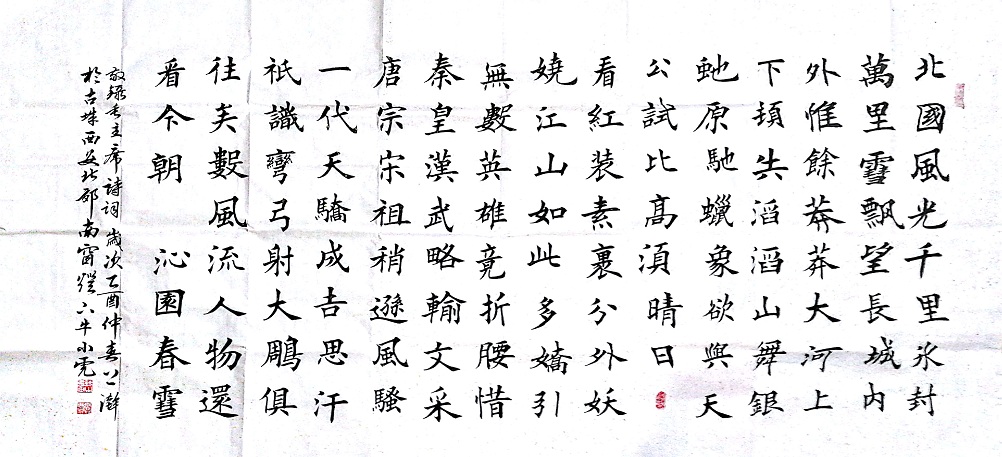 北國風光千里氷封
萬里雪飄望長城内
外惟餘莽莽大河上
下頓失滔滔山舞銀
虵原馳蠟象欲與天
公試比高須晴日
看紅裝素裹分外妖
嬈江山如此多嬌引
無數英雄竟折腰惜
秦皇漢武略輸文采
唐宗宋祖稍遜風騷
一代天驕成吉思汗
祇識彎弓射大鵰俱
往矣數風流人物還
看今朝 沁園春雪
敬錄毛主席詩詞 歲次乙酉仲春
於古城西安北郊南窗 六牛小